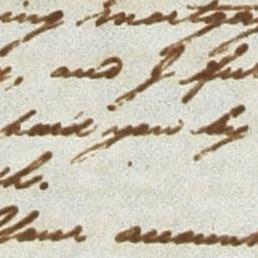 ing mortga
, and I ful
heard you by
th.
Your accoun